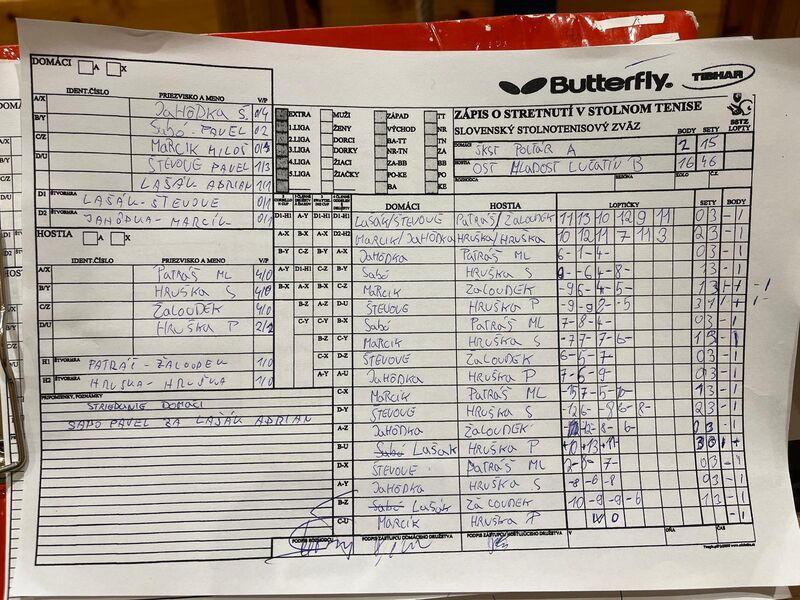 Butterfly.
TIBHAR
DOMÁCI A X
IDENT.ČÍSLO PRIEZVISKO A MENO V/P
A/X JAHÔDKA Š. 0/4
B/Y SABÓ PAVEL 0/2
C/Z MARCÍK MILOŠ 0/3
D/U ŠTEVOVE PAVEL 1/3
LAŠÁK ADRIAN 1/1
D1 ŠTVORHRA LAŠÁK - ŠTEVOVE 0/1
D2 ŠTVORHRA JAHÔDKA - MARCÍK 0/1
HOSTIA
IDENT.ČÍSLO PRIEZVISKO A MENO V/P
A/X PATRÁŠ ML 4/0
B/Y HRUŠKA S 4/0
C/Z ŽALOUDEK 4/0
D/U HRUŠKA P 2/2
H1 ŠTVORHRA PATRÁŠ - ŽALOUDEK 1/0
H2 ŠTVORHRA HRUŠKA - HRUŠKA 1/0
PRIPOMIENKY, POZNÁMKY
STRIEDANIE DOMÁCI
SABO PAVEL ZA LAŠÁK ADRIAN
EXTRA MUŽI ZÁPAD TT
1.LIGA ŽENY VÝCHOD NR
2.LIGA DORCI BA-TT TN
3.LIGA DORKY NR-TN ZA
4.LIGA ŽIACI ZA-BB BB
5.LIGA ŽIAČKY PO-KE PO
BA KE
ZÁPIS O STRETNUTÍ V STOLNOM TENISE
SLOVENSKÝ STOLNOTENISOVÝ ZVÄZ
SSTZ
BODY SETY LOPTY
DOMÁCI ŠKST POLTÁR A 2 15
HOSTIA OŠT MLADOSŤ LUČATÍN B 16 46
ROZHODCA KOLO Č.Z.
DOMÁCI HOSTIA LOPTIČKY SETY BODY
D1-H1 A-Y D1-H1 LAŠÁK/ŠTEVOVE PATRÁŠ/ŽALOUDEK 11 13 10 12 9 11 03 -1
A-X B-X A-X D2-H2 MARCIK/JAHÔDKA HRUŠKA/HRUŠKA 10 12 11 7 11 3 23 -1
B-Y C-Z B-Y A-X JAHÔDKA PATRÁŠ ML -6 -1 -4 03 -1
A-Y D1-H1 C-Z B-Y SABÓ HRUŠKA S 13 -1
B-X A-X C-Z MARCIK ŽALOUDEK -9 -6 -4 -5 13
B-Z A-Z D-U ŠTEVOVE HRUŠKA P 31
C-Y C-Y B-X SABÓ PATRÁŠ ML -7 -8 -4 03 -1
B-Z C-Y MARCIK HRUŠKA S 13 -1
C-X D-Z ŠTEVOVE ŽALOUDEK -6 -5 -7 03 -1
A-Y A-U JAHÔDKA HRUŠKA P -7 -6 -9 03 -1
C-X MARCIK PATRÁŠ ML 13 -1
D-Y ŠTEVOVE HRUŠKA S 23 -1
A-Z JAHÔDKA ŽALOUDEK 03 -1
B-U LAŠÁK HRUŠKA P +10 +13 +11 30
D-X ŠTEVOVE PATRÁŠ ML 03 -1
A-Y JAHÔDKA HRUŠKA S -8 -6 -8 03 -1
B-Z LAŠÁK ŽALOUDEK 10 -9 -9 -6 13 -1
C-U MARCÍK HRUŠKA P W O
PODPIS ROZHODCU PODPIS ZÁSTUPCU DOMÁCEHO DRUŽSTVA PODPIS ZÁSTUPCU HOSŤUJÚCEHO DRUŽSTVA V DŇA ČAS